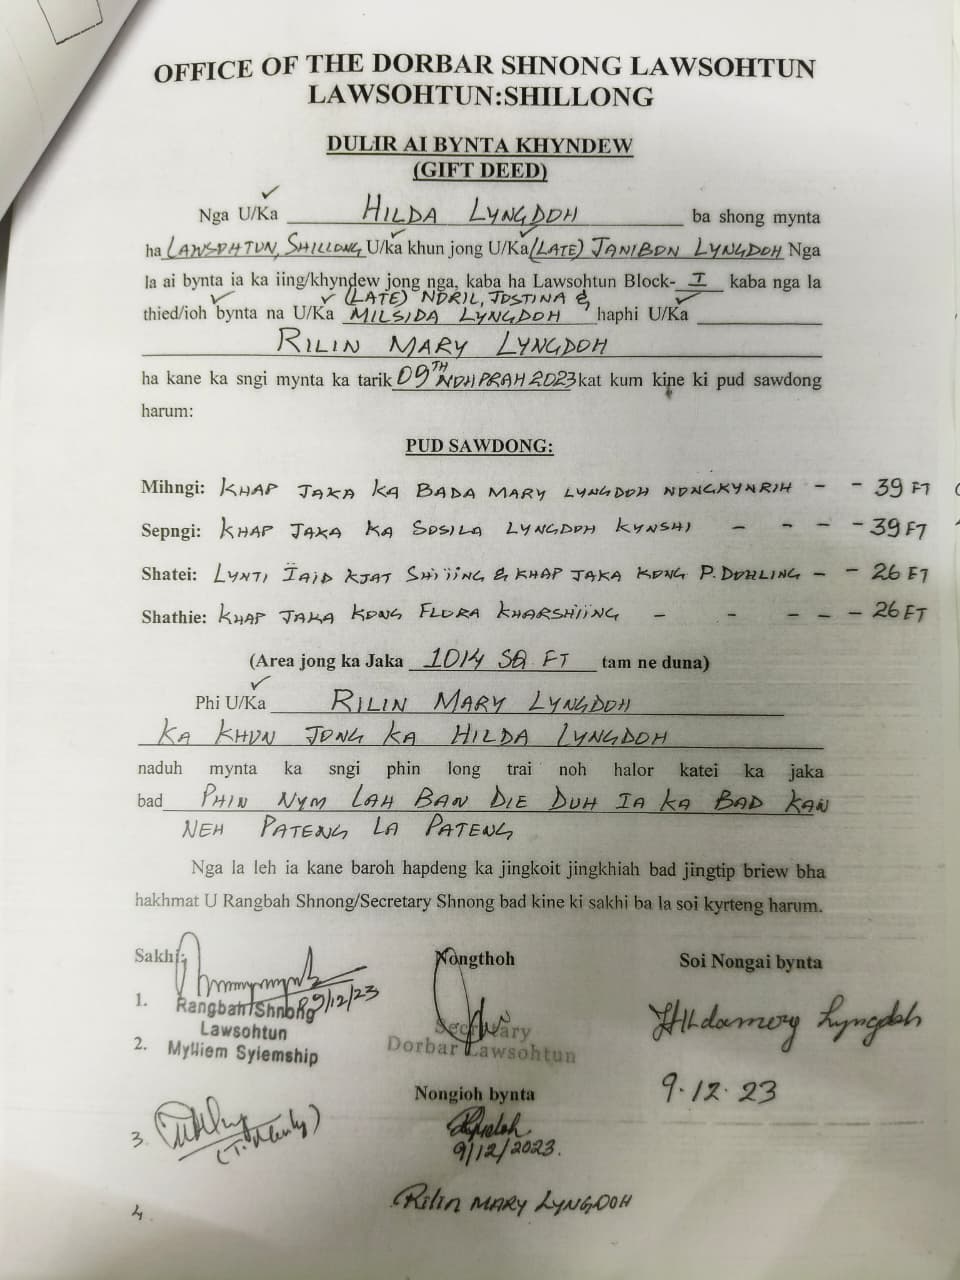 OFFICE OF THE DORBAR SHNONG LAWSOHTUN
LAWSOHTUN:SHILLONG
DULIR AI BYNTA KHYNDEW
(GIFT DEED)
Nga U/Ka HILDA LYNGDOH ba shong mynta
ha LAWSOHTUN, SHILLONG U/ka khun jong U/Ka (LATE) JANIBON LYNGDOH Nga
la ai bynta ia ka iing/khyndew jong nga, kaba ha Lawsohtun Block- I kaba nga la
(LATE) NDRIL, JOSTINA &
thied/ioh bynta na U/Ka MILSIDA LYNGDOH haphi U/Ka
RILIN MARY LYNGDOH
ha kane ka sngi mynta ka tarik 09TH NOHPRAH 2023 kat kum kine ki pud sawdong
harum:
PUD SAWDONG:
Mihngi: KHAP JAKA KA BADA MARY LYNGDOH NONGKYNRIH - - 39 FT
Sepngi: KHAP JAKA KA SOSILA LYNGDOH KYNSHI - - - - 39 FT
Shatei: LYNTI ÏAID KJAT SHIÏING & KHAP JAKA KONG P. DOHLING - - 26 FT
Shathie: KHAP JAKA KONG FLORA KHARSHIÏNG - - - - - 26 FT
(Area jong ka Jaka 1014 SQ FT tam ne duna)
Phi U/Ka RILIN MARY LYNGDOH
KA KHUN JONG KA HILDA LYNGDOH
naduh mynta ka sngi phin long trai noh halor katei ka jaka
bad PHIN NYM LAH BAN DIE DUH IA KA BAD KAN
NEH PATENG LA PATENG
Nga la leh ia kane baroh hapdeng ka jingkoit jingkhiah bad jingtip briew bha
hakhmat U Rangbah Shnong/Secretary Shnong bad kine ki sakhi ba la soi kyrteng harum.
Sakhi: Nongthoh Soi Nongai bynta
1. 9/12/23
Rangbah Shnong
Lawsohtun
2. Mylliem Syiemship
Secretary
Dorbar Lawsohtun
Hildamery Lyngdoh
9.12.23
Nongioh bynta
3.
9/12/2023.
4.
Rilin MARY LYNGDOH